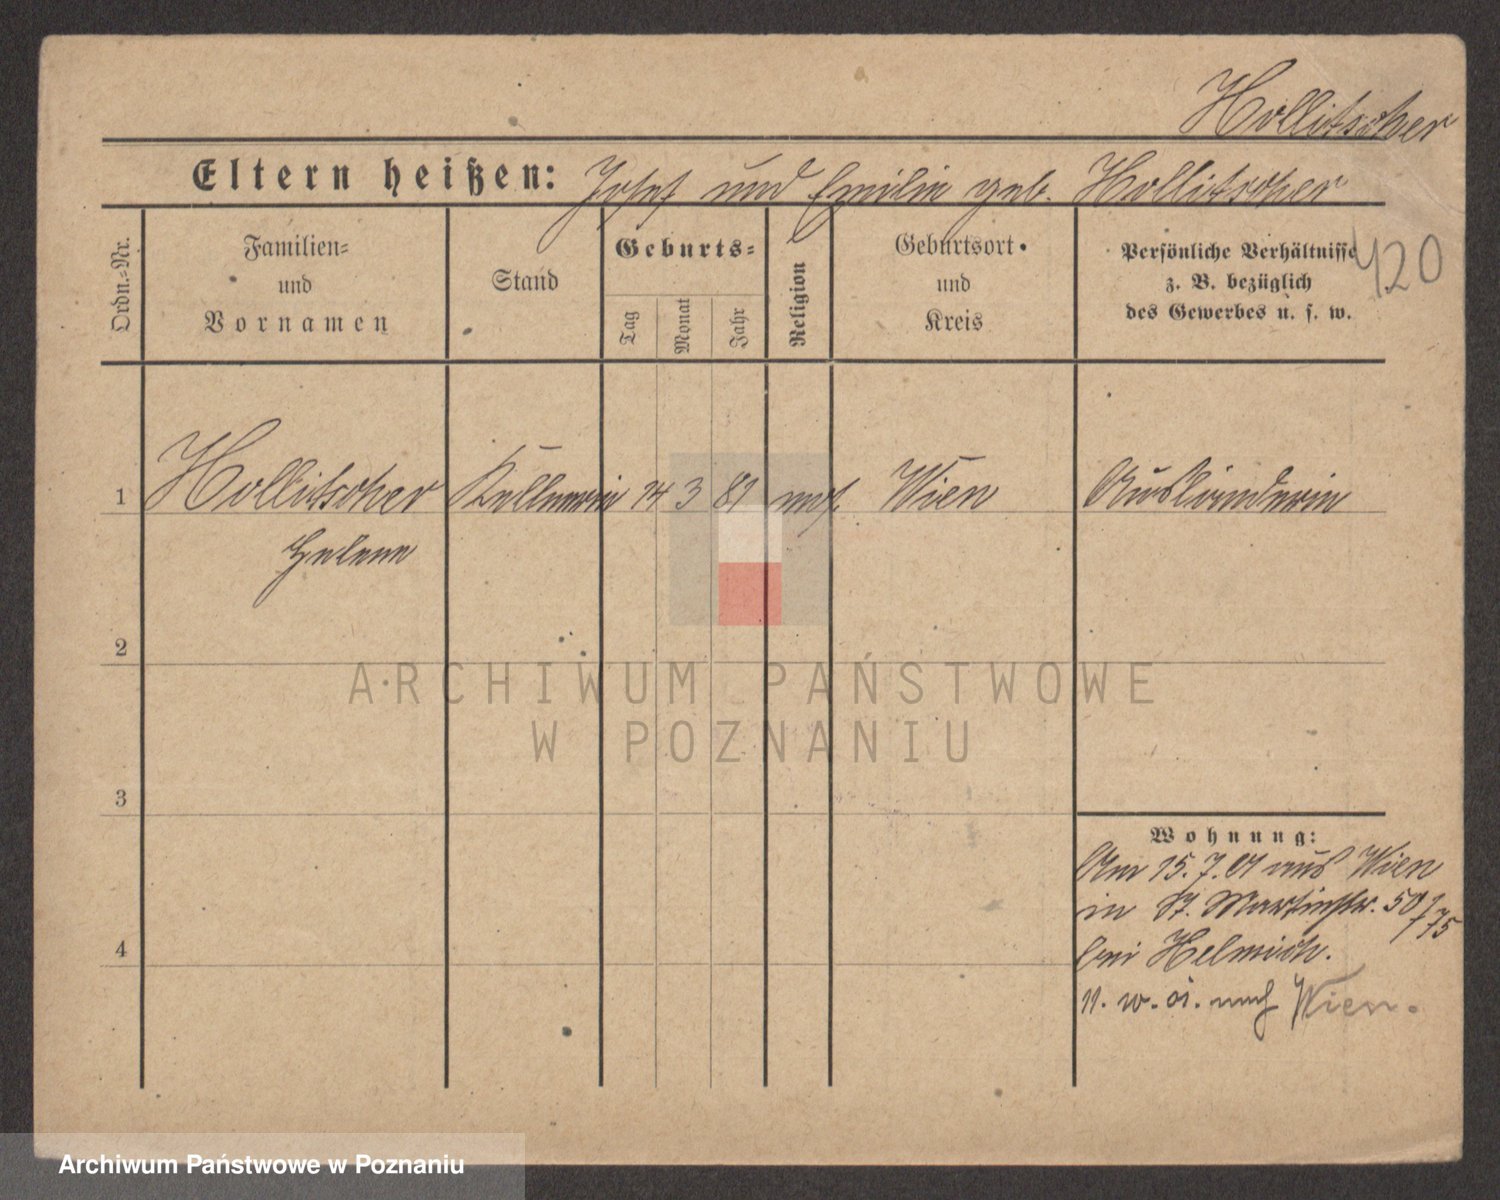 Hollitscher
Eltern heißen: Josef und Emilie geb. Hollitscher
Ordn.-Nr.
Familien- und Vornamen
Stand
Geburts-
Tag
Monat
Jahr
Religion
Geburtsort und Kreis
Persönliche Verhältnisse z. B. bezüglich des Gewerbes u. s. w.
420
1 Hollitscher Kellnerin 14 3 81 mos. Wien Ausländerin
Helene
2
ARCHIWUM PAŃSTWOWE
W POZNANIU
3
Wohnung:
Am 15.7.01 aus Wien
in St. Martinstr. 50/75
4
bei Helmich.
nach Wien.
Archiwum Państwowe w Poznaniu